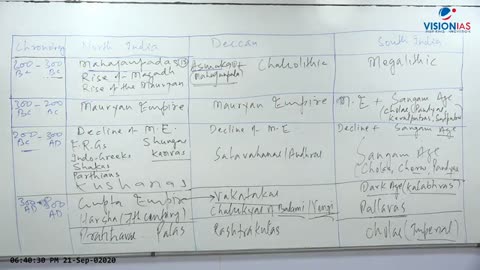 VISIONIAS
INSPIRING INNOVATION
Chronology North India Deccan South India
BC BC Mahajanapadas Chalcolithic Megalithic
Rise of Magadh Mahajanapada
Rise of the Mauryan
300 - 200 BC BC Mauryan Empire Mauryan Empire M.E + Sangam Age
200 - 300 BC AD Decline of M.E. Decline of M.E Decline + Sangam Age
Shungas
Indo-Greeks Kanvas Satavahanas/Andhras Sangam Age
Shakas Cholas, Cheras, Pandyas
Parthians
Kushanas Dark Age (Kalabhras)
AD AD Gupta Empire → Vakatakas Pallavas
Harsha (7th century) Chalukyas of Badami/Vengi
Pratiharas Palas Rashtrakutas Cholas (Imperial)
06:40:30 PM 21-Sep-02020